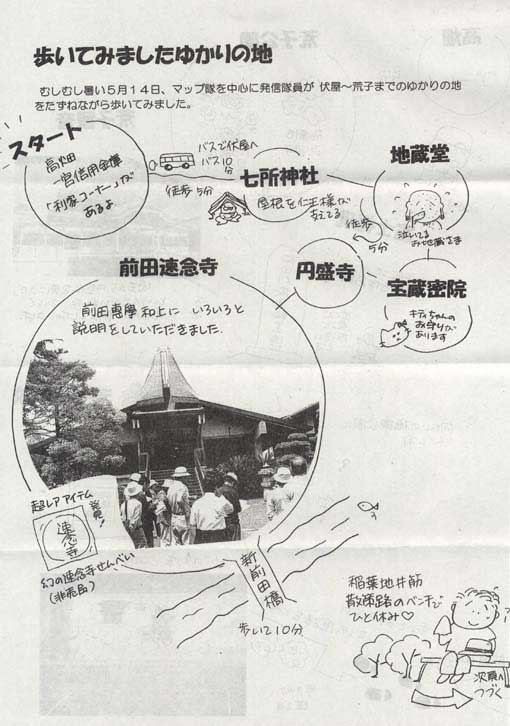 歩いてみましたゆかりの地
むしむし暑い5月14日、マップ隊を中心に発信隊員が 伏屋～荒子までのゆかりの地
をたずねながら歩いてみました。
スタート
高畑
一宮信用金庫
「利家コーナー」が
あるよ
バスで伏屋へ
バス10分
徒歩5分
七所神社
屋根を仁王様が
支えてる
地蔵堂
泣いてる
お地蔵さま
徒歩
5分
宝蔵密院
キティちゃんの
お守りが
あります
円盛寺
前田速念寺
前田恵學和上に いろいろと
説明をしていただきました.
超レアアイテム
発見!
速念寺
幻の速念寺せんべい
(非売品)
新前田橋
歩いて10分
稲葉地井筋
散策路のベンチで
ひと休み♡
次頁へ
つづく